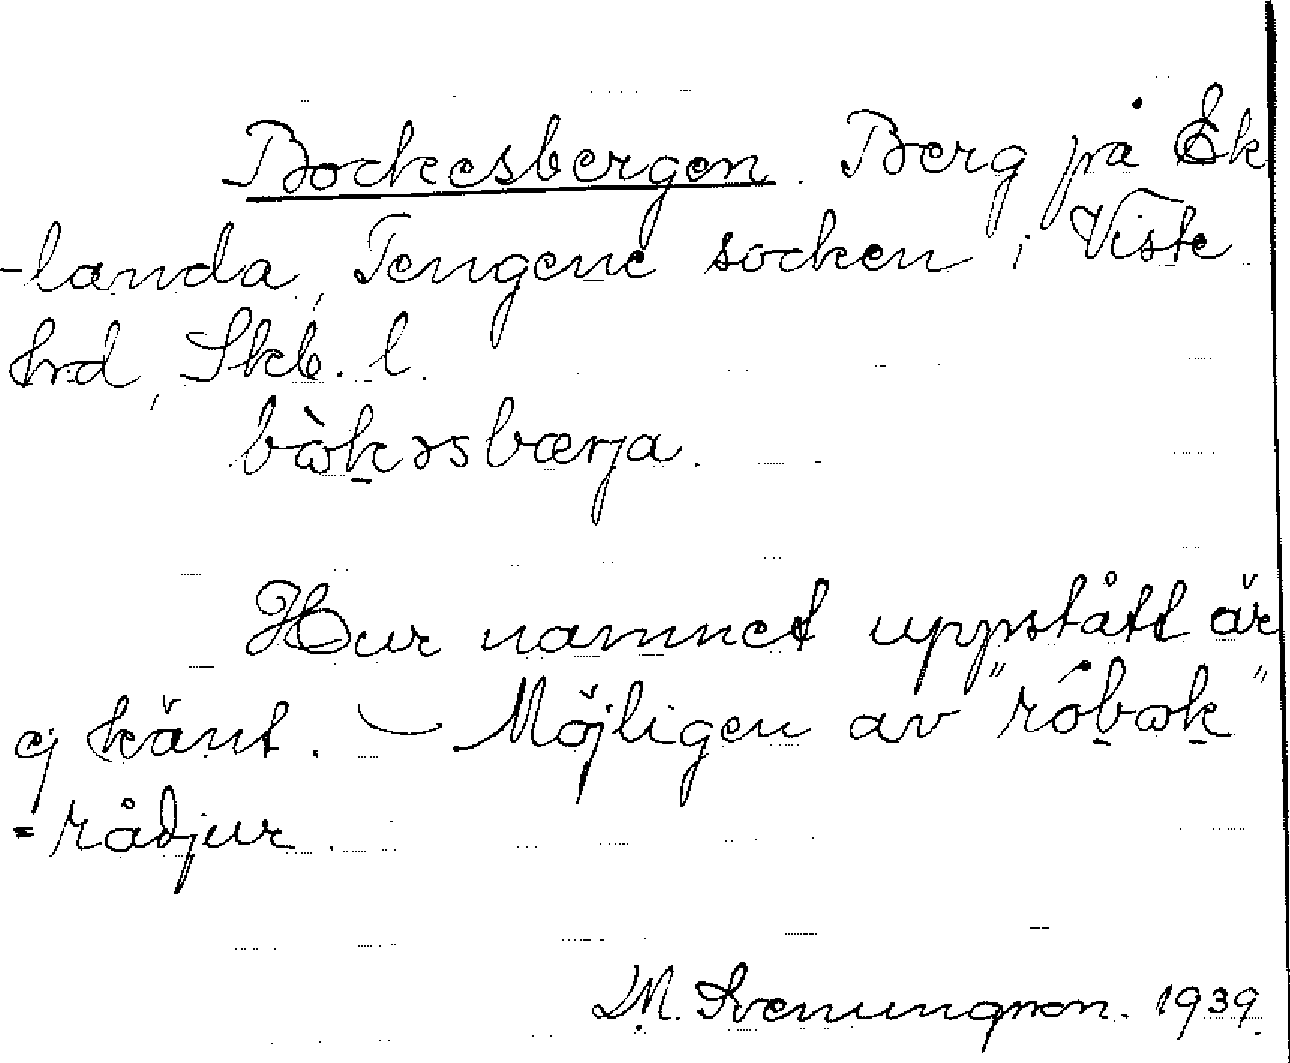 Bockesbergen. Berg på Ek
-landa, Tengene socken i Viste
hrd, Skb. l.
bὼkəsbærja.
Hur namnet uppstått är
ej känt. — Möjligen av "róbωk"
= rådjur.
M. Svenungson. 1939.